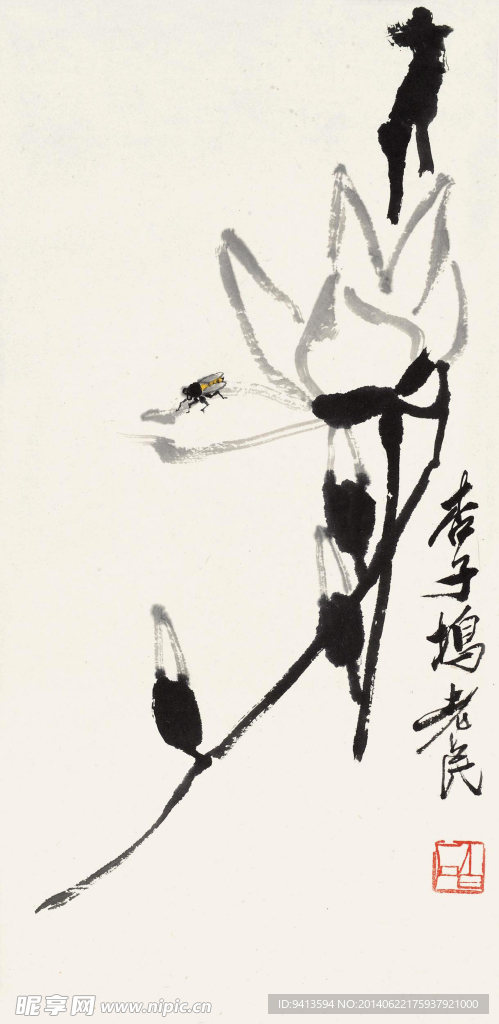 杏子塢老民
昵享网 www.nipic.cn
ID:9413594 NO:20140622175937921000